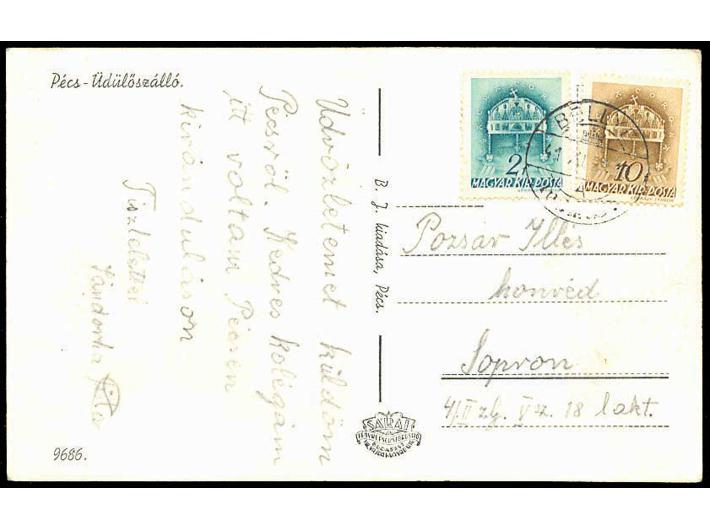 Pécs-Üdülőszálló.
Üdvözletemet küldöm
Pécsről. Kedves kolégám
itt voltam Pécsen
kiránduláson
Tisztelettel
Sándorka
B. J. kiadása, Pécs.
2
MAGYAR KIR. POSTA
10
MAGYAR KIR. POSTA
Pozsár Illés
honvéd
Sopron
4/II zlj. V. sz. 18 lakt.
9686.